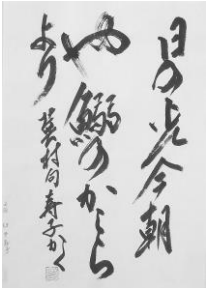 日の光今朝
や鰯のかしら
より 蕪村句 寿子かく